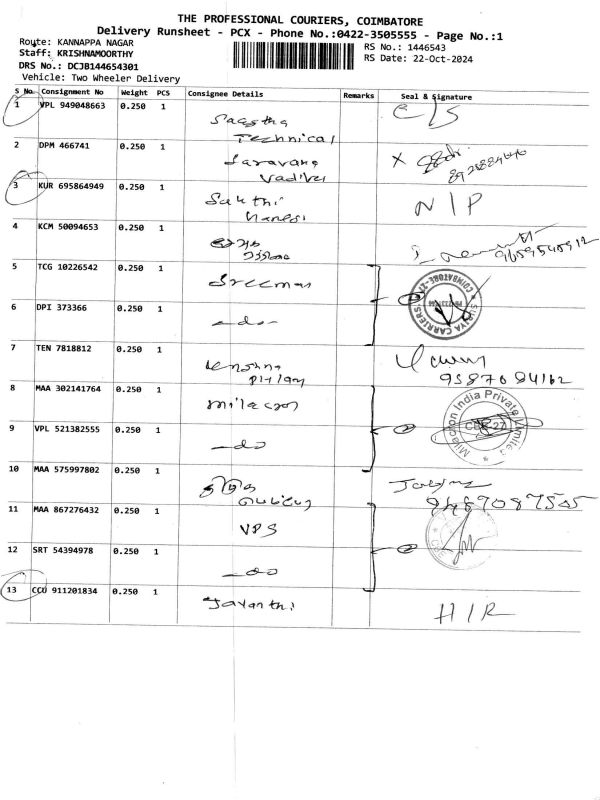 THE PROFESSIONAL COURIERS, COIMBATORE
Delivery Runsheet - PCX - Phone No.:0422-3505555 - Page No.:1
Route: KANNAPPA NAGAR
Staff: KRISHNAMOORTHY
DRS No.: DCJB144654301
Vehicle: Two Wheeler Delivery
RS No.: 1446543
RS Date: 22-Oct-2024
S No. Consignment No Weight PCS Consignee Details Remarks Seal & Signature
1 VPL 949048663 0.250 1 Technical C/S
2 DPM 466741 0.250 1 Saravana Vadivel X
3 KUR 695864949 0.250 1 Sakthi N/P
4 KCM 50094653 0.250 1
5 TCG 10226542 0.250 1 Sreemas COIMBATORE-27 SURIYA CARRIERS
6 DPI 373366 0.250 1 -do-
7 TEN 7818812 0.250 1 9587084162
8 MAA 302141764 0.250 1 Milacron Milacron India Private Limited CBE-27
9 VPL 521382555 0.250 1 -do
10 MAA 575997802 0.250 1
11 MAA 867276432 0.250 1 VPS
12 SRT 54394978 0.250 1 -do
13 CCU 911201834 0.250 1 Jayanthi H/R